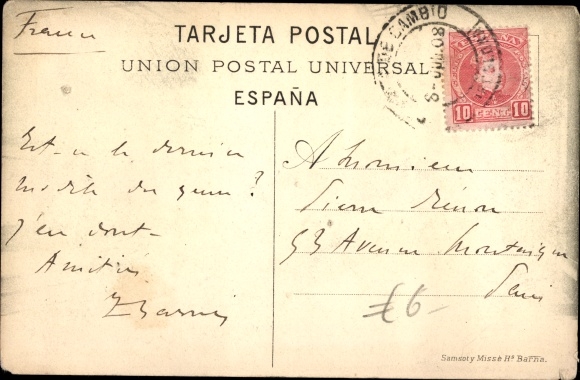 France
TARJETA POSTAL
UNION POSTAL UNIVERSAL
ESPAÑA
CAMBIO
10 CENT. 10
Est-ce le dernier
modèle du genre ?
J'en doute
Amitiés
A Monsieur
Pierre
53 Avenue Montaigne
Paris
£6-
Samsot y Missé Hs Barña.